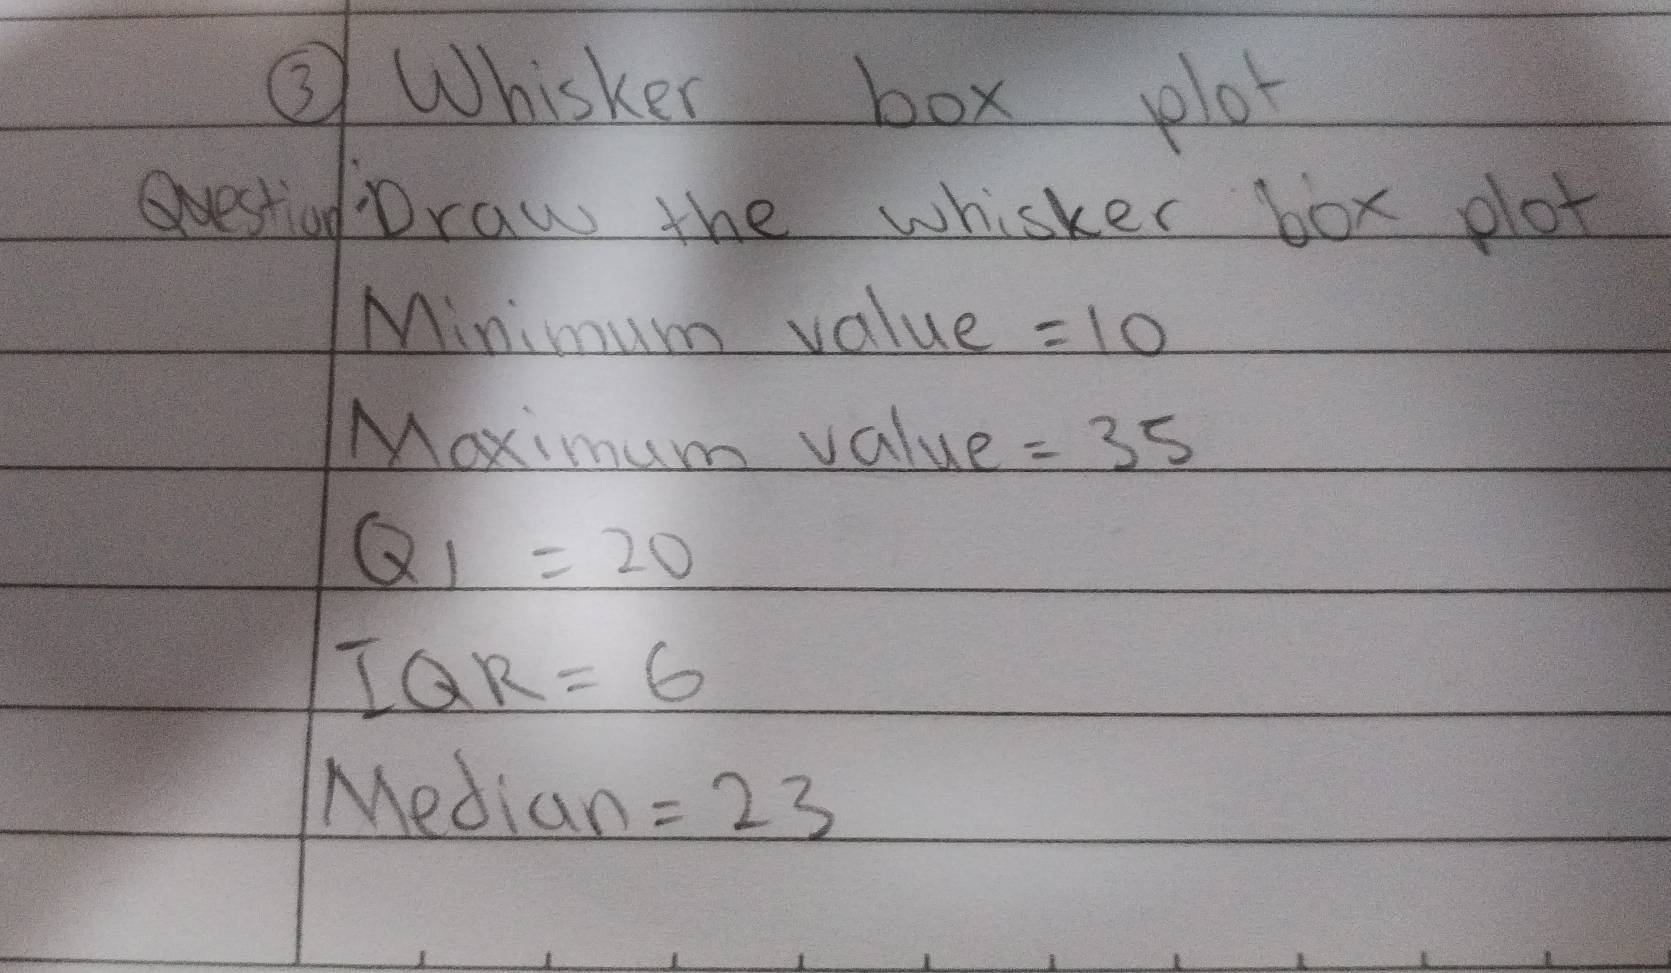 ③ Whisker box plot
Question: Draw the whisker box plot
Minimum value = 10
Maximum value = 35
Q1 = 20
IQR = 6
Median = 23